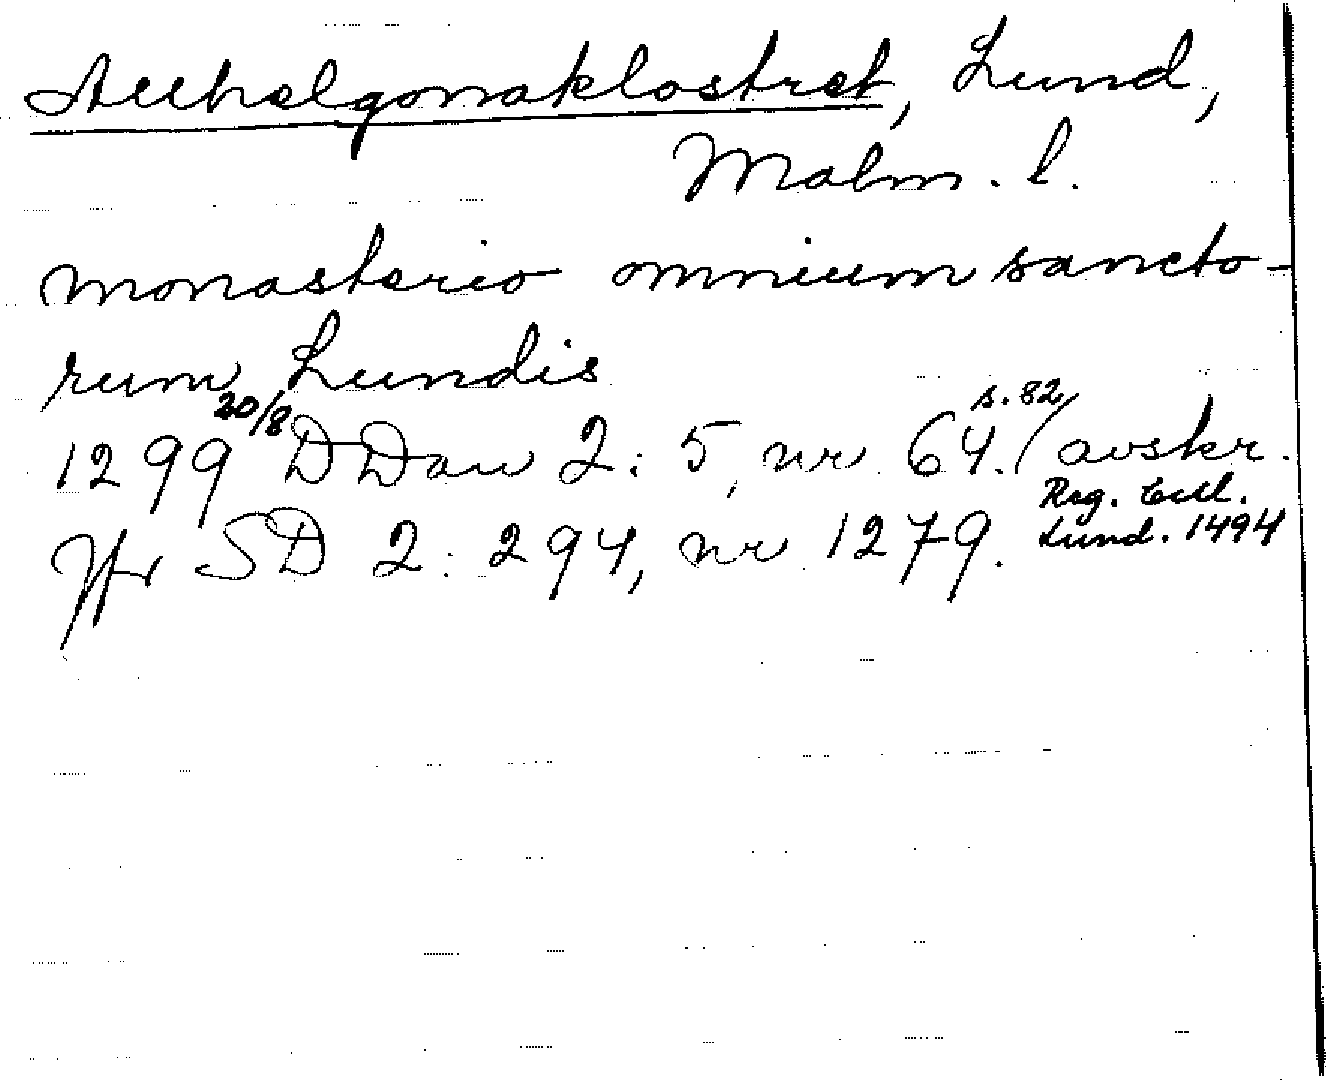 Allhelgonaklostret, Lund,
Malm. l.
monasterio omnium sancto-
rum Lundis
1299 20/8 DDan 2: 5, nr 64. s. 82/ avskr.
Reg. Eccl.
Lund. 1494
Jfr SD 2: 294, nr 1279.